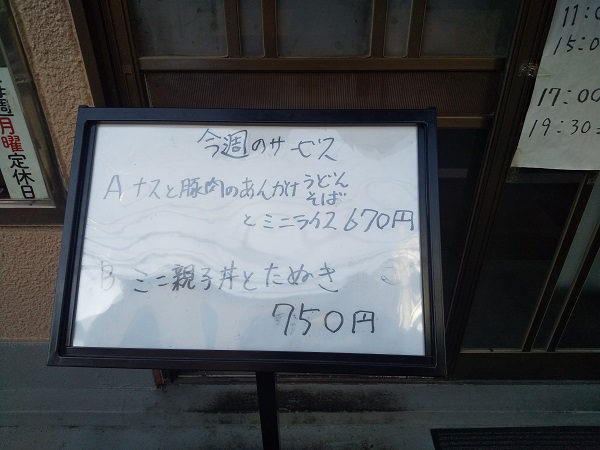 今週のサービス
A ナスと豚肉のあんかけうどん
そば
とミニライス 670円
B ミニ親子丼とたぬき
750円
毎週月曜定休日
11:0
15:0
17:00
19:30